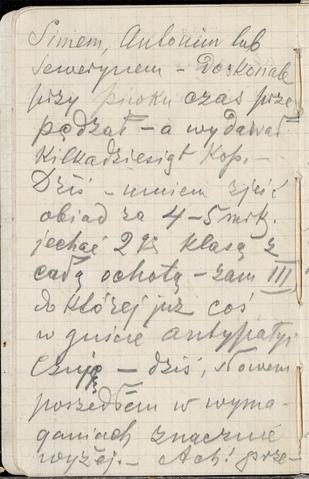 Simem, Antonim lub
Sewerynem – Doskonale
przy pivku czas prze
pędzał – a wydawał
kilkadziesiąt kop. –
Dziś – umiem zjeść
obiad za 4–5 mrk.
jechać 2 kl klasą z
całą ochotą – zam III
do której już coś
w guście antypatyi
czuję – dziś, słowem
poszedłem w wyma-
ganiach znacznie
wyżej. – Ach! prze-